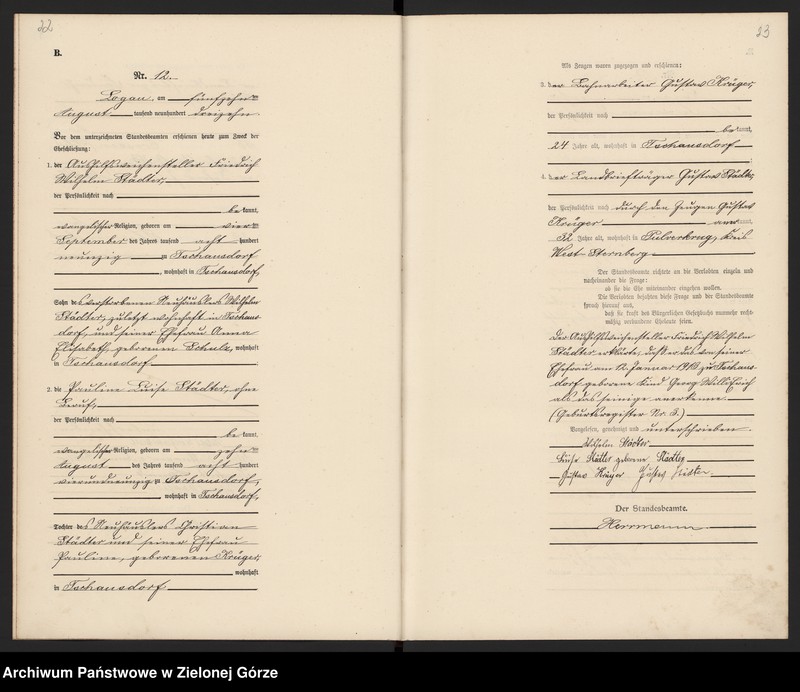 22
B.
Nr. 12.
Logau, am fünfzehnten
August tausend neunhundert dreizehn
Vor dem unterzeichneten Standesbeamten erschienen heute zum Zweck der
Eheschließung:
1. der Aushilfsweichensteller Friedrich
Wilhelm Städter,
der Persönlichkeit nach
be kannt,
evangelischer Religion, geboren am vierten
September des Jahres tausend acht hundert
neunzig zu Tschausdorf
, wohnhaft in Tschausdorf,
Sohn des verstorbenen Neuhäuslers Wilhelm
Städter, zuletzt wohnhaft in Tschaus-
dorf, und seiner Ehefrau Anna
Elisabeth, geborenen Schulz, wohnhaft
in Tschausdorf
2. die Pauline Luise Städter, ohne
Beruf,
der Persönlichkeit nach
be kannt,
evangelischer Religion, geboren am zehnten
August des Jahres tausend acht hundert
vierundneunzig zu Tschausdorf,
wohnhaft in Tschausdorf,
Tochter des Neuhäuslers Christian
Städter und seiner Ehefrau
Pauline, geborenen Krüger,
wohnhaft
in Tschausdorf
23
Als Zeugen waren zugezogen und erschienen:
3. der Bahnarbeiter Gustav Krüger,
der Persönlichkeit nach
be kannt,
24 Jahre alt, wohnhaft in Tschausdorf
;
4. der Landbriefträger Gustav Städter,
der Persönlichkeit nach durch den Zeugen Gustav
Krüger anerkannt,
32 Jahre alt, wohnhaft in Pulverkrug, Kreis
West-Sternberg
Der Standesbeamte richtete an die Verlobten einzeln und
nacheinander die Frage:
ob sie die Ehe miteinander eingehen wollen.
Die Verlobten bejahten diese Frage und der Standesbeamte
sprach hierauf aus,
daß sie kraft des Bürgerlichen Gesetzbuchs nunmehr recht-
mäßig verbundene Eheleute seien.
Der Aushilfsweichensteller Friedrich Wilhelm
Städter erklärte, daß er das von seiner
Ehefrau am 12. Januar 1913 zu Tschaus-
dorf geborene Kind Georg Willi Erich
als das seinige anerkenne.
(Geburtsregister Nr. 3.)
Vorgelesen, genehmigt und unterschrieben.
Wilhelm Städter
Luise Städter geborene Städter
Gustav Krüger Gustav Städter
Der Standesbeamte.
Herrmann
Archiwum Państwowe w Zielonej Górze